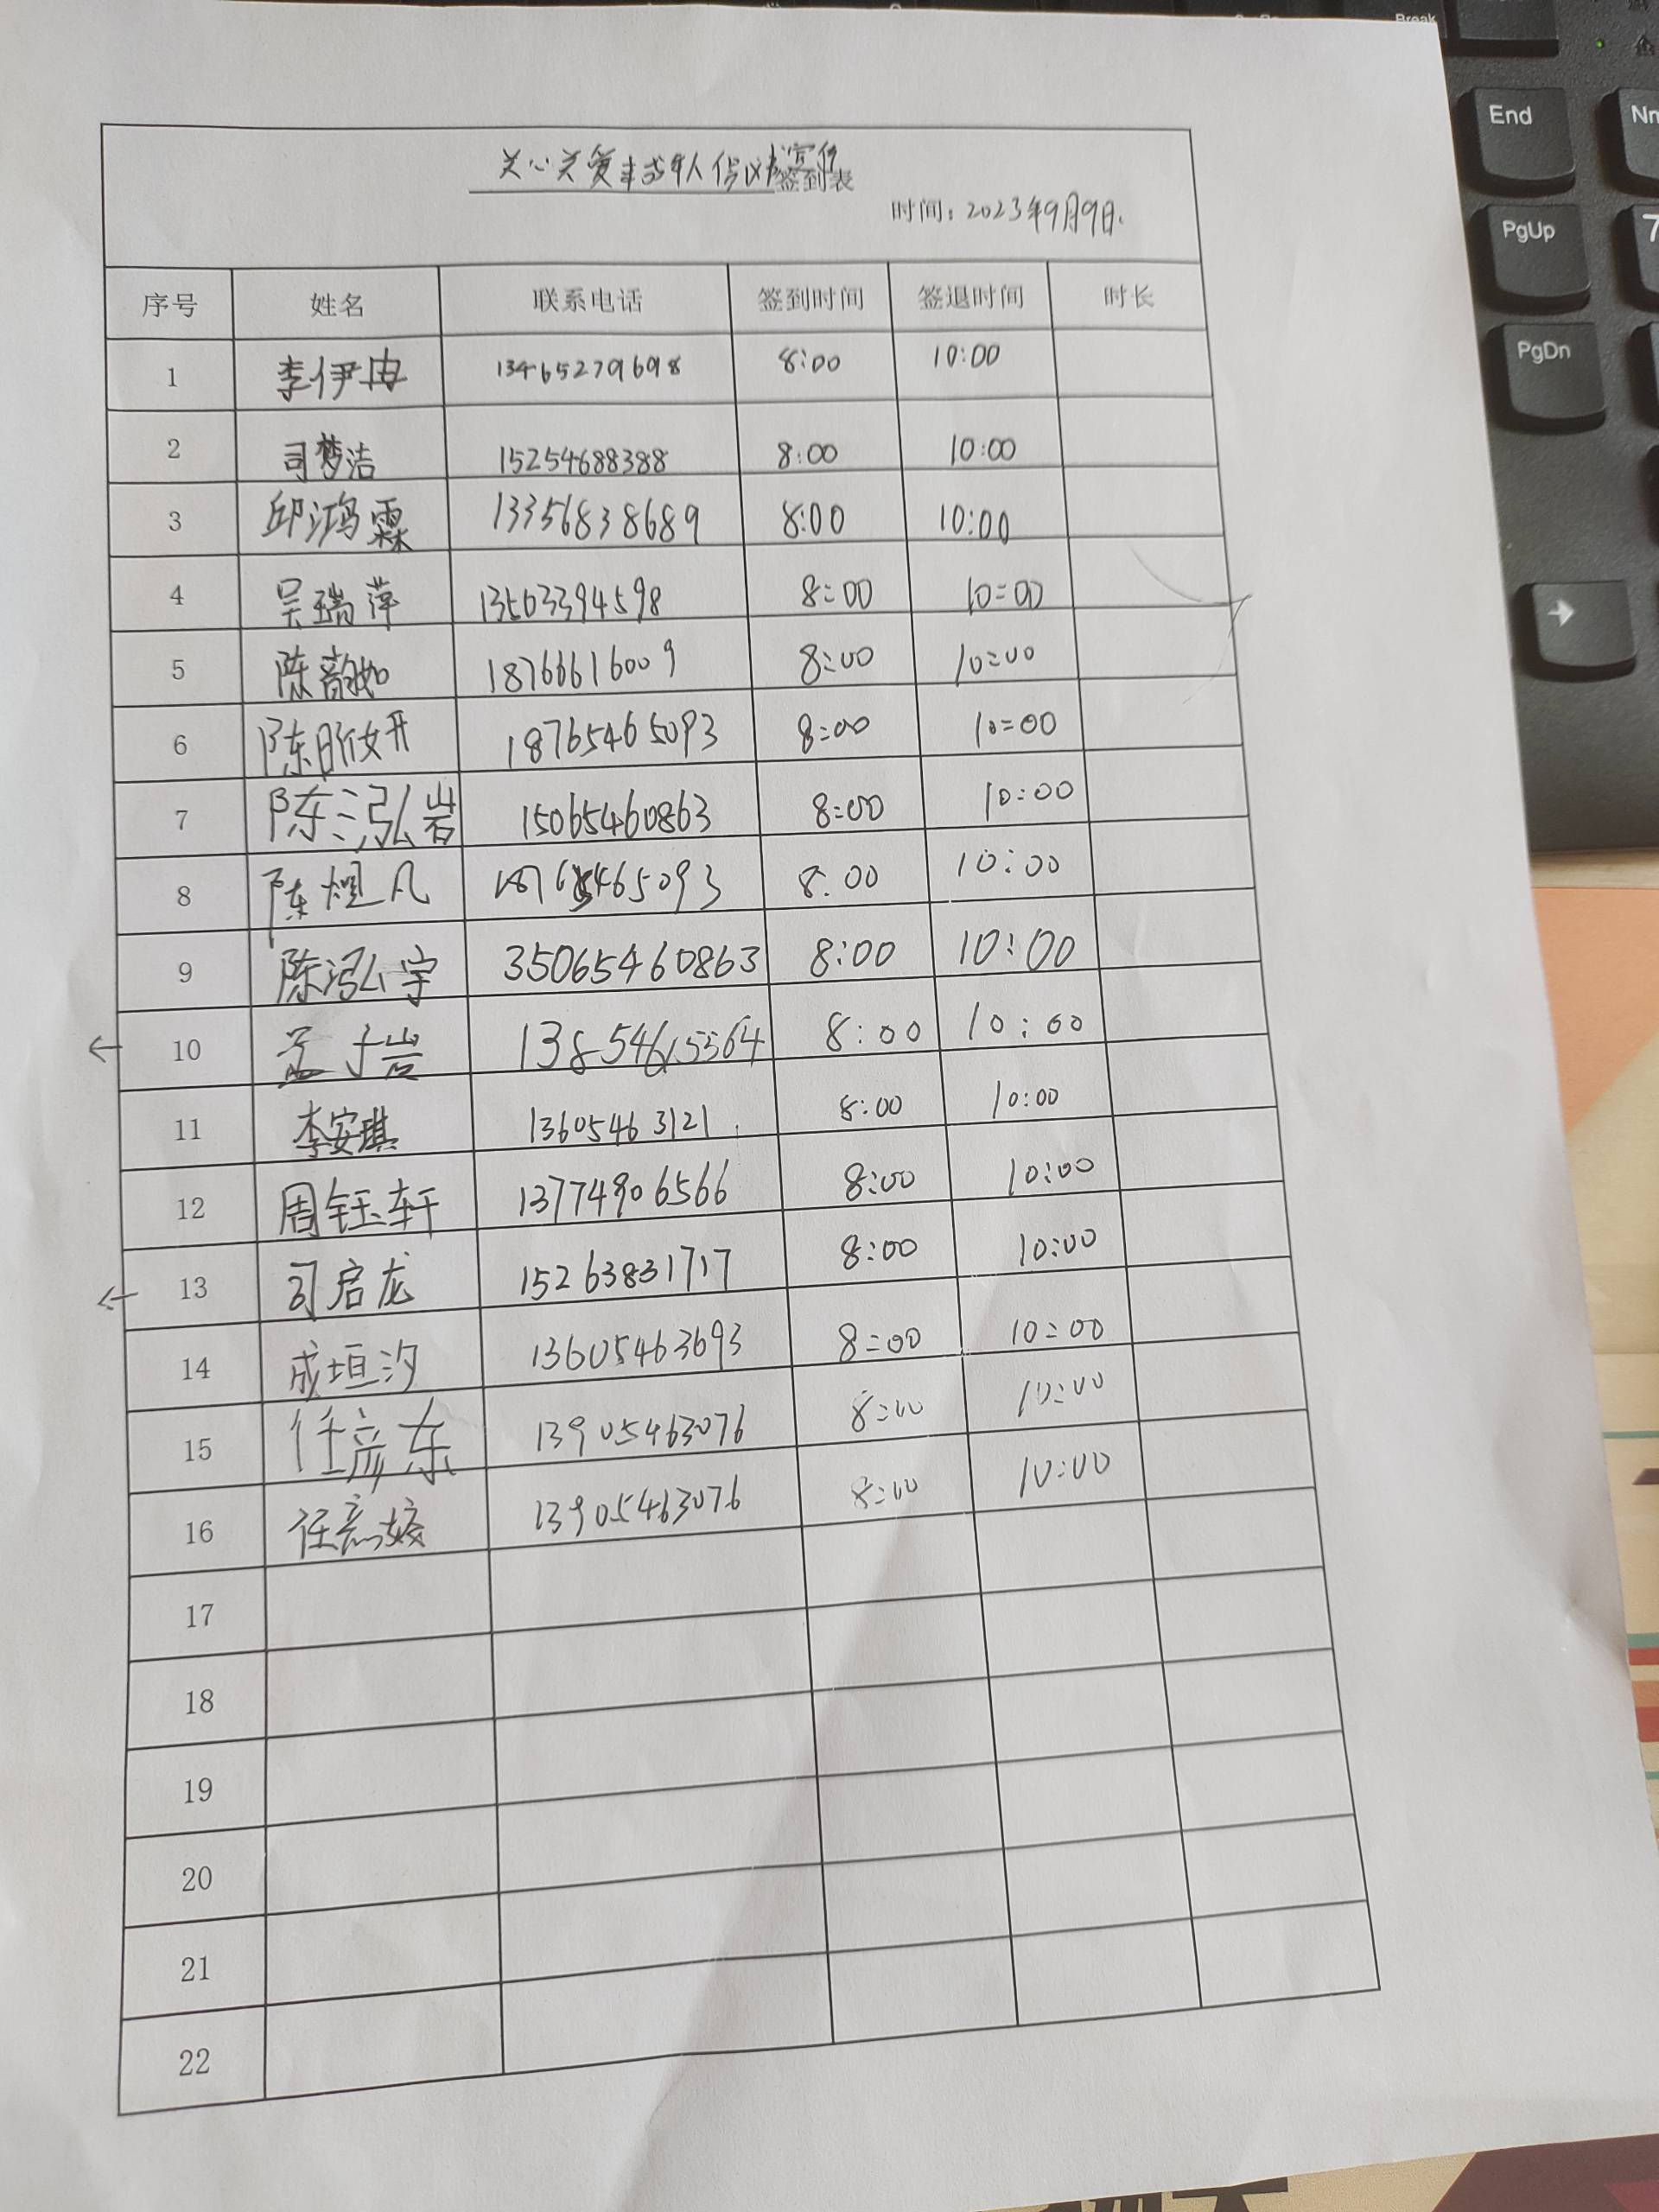 关心关爱未成年人倡议书宣传
签到表
时间: 2023年9月9日.
序号 姓名 联系电话 签到时间 签退时间 时长
1 李伊冉 13465279698 8:00 10:00
2 司梦洁 15254688388 8:00 10:00
3 邱鸿霖 13356838689 8:00 10:00
4 吴瑞萍 13563394598 8:00 10:00
5 陈韵如 18766616009 8:00 10:00
6 陈昕妍 18765465093 8:00 10:00
7 陈泓岩 15065460863 8:00 10:00
8 陈煜凡 18765465093 8:00 10:00
9 陈泓宇 35065460863 8:00 10:00
10 孟子岩 13854615564 8:00 10:00
11 李安琪 13605463121 8:00 10:00
12 周钰轩 13774906566 8:00 10:00
13 司启龙 15263831717 8:00 10:00
14 成垣汐 13605463693 8:00 10:00
15 任彦东 13905463076 8:00 10:00
16 任 13905463076 8:00 10:00
17
18
19
20
21
22
End
PgUp
7
PgDn
Break